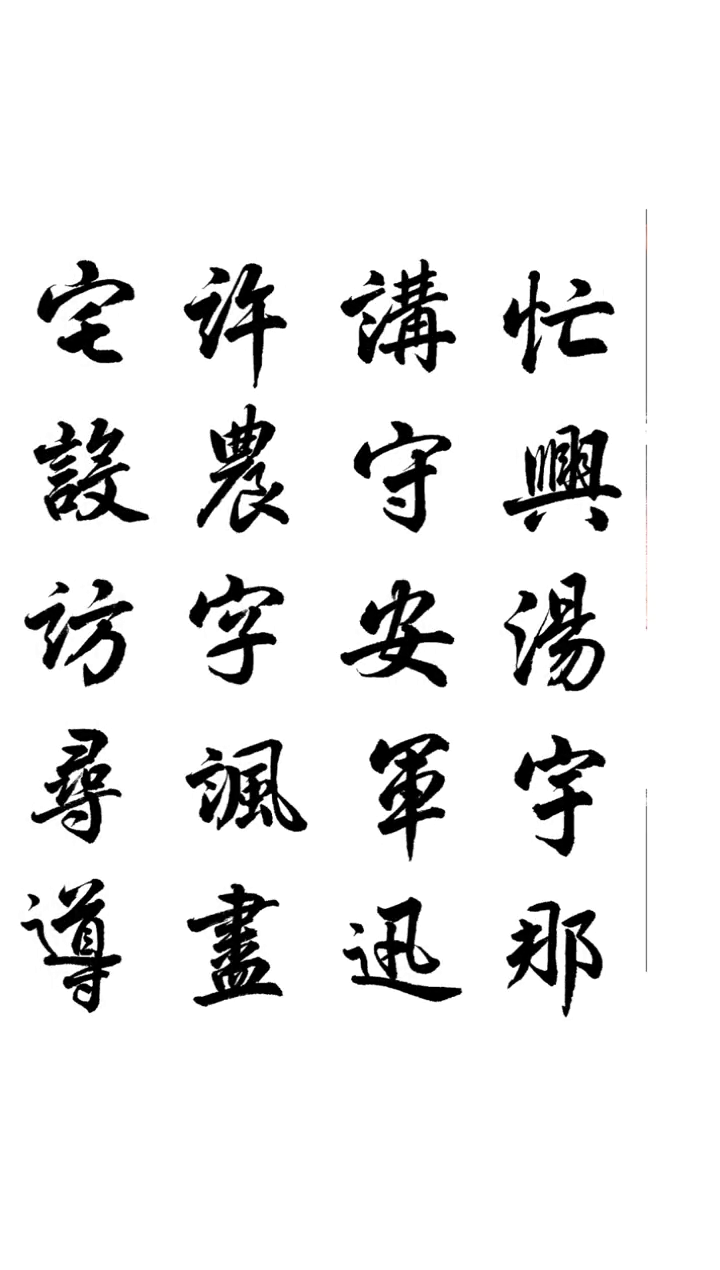 忙興湯宇那
講守安軍迅
許農字諷盡
宅設訪尋導